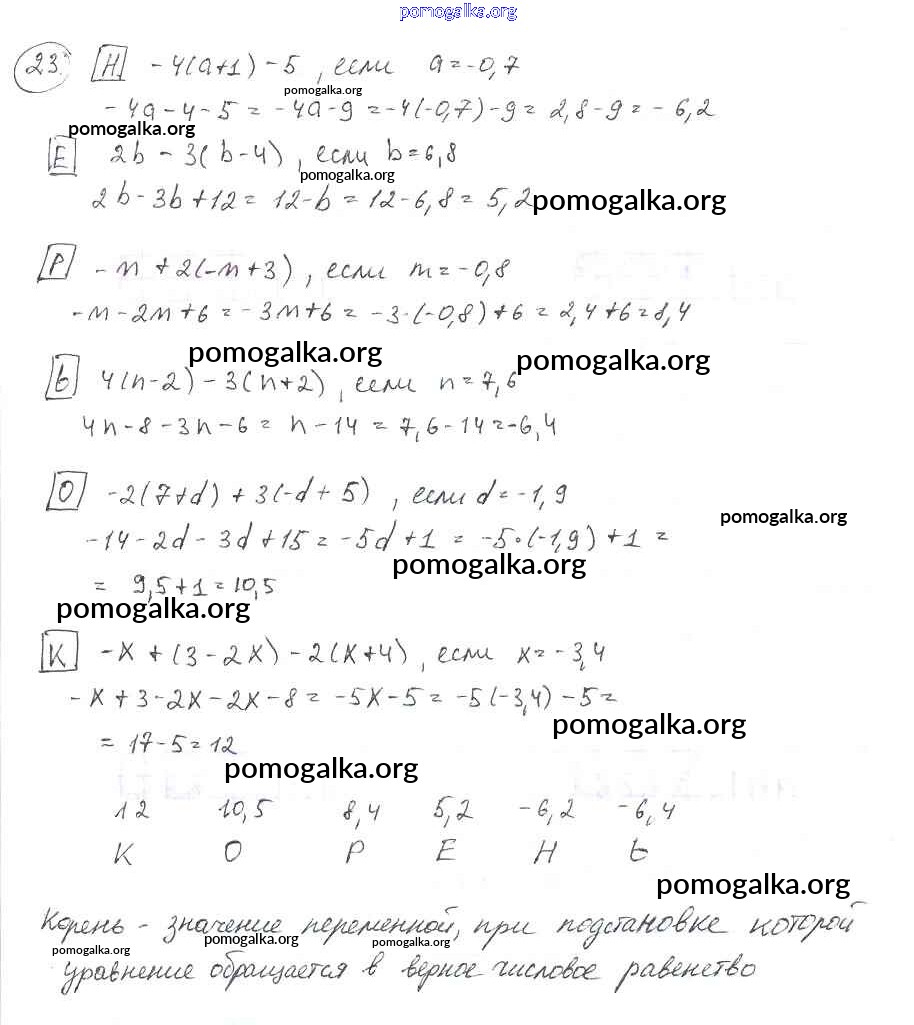 pomogalka.org
23. Н -4(a+1)-5, если a=-0,7
pomogalka.org
-4a-4-5=-4a-9=-4(-0,7)-9=2,8-9=-6,2
pomogalka.org
Е 2b-3(b-4), если b=6,8
pomogalka.org
2b-3b+12=12-b=12-6,8=5,2
pomogalka.org
Р -m+2(-m+3), если m=-0,8
-m-2m+6=-3m+6=-3·(-0,8)+6=2,4+6=8,4
pomogalka.org pomogalka.org
Ь 4(n-2)-3(n+2), если n=7,6
4n-8-3n-6=n-14=7,6-14=-6,4
О -2(7+d)+3(-d+5), если d=-1,9
pomogalka.org
-14-2d-3d+15=-5d+1=-5·(-1,9)+1=
pomogalka.org
=9,5+1=10,5
pomogalka.org
К -x+(3-2x)-2(x+4), если x=-3,4
-x+3-2x-2x-8=-5x-5=-5(-3,4)-5=
pomogalka.org
=17-5=12
pomogalka.org
12 10,5 8,4 5,2 -6,2 -6,4
К О Р Е Н Ь
pomogalka.org
Корень - значение переменной, при подстановке которой
pomogalka.org pomogalka.org pomogalka.org
уравнение обращается в верное числовое равенство